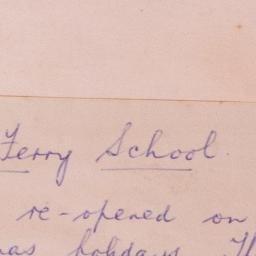 Ferry School.
re-opened on
holidays. Th